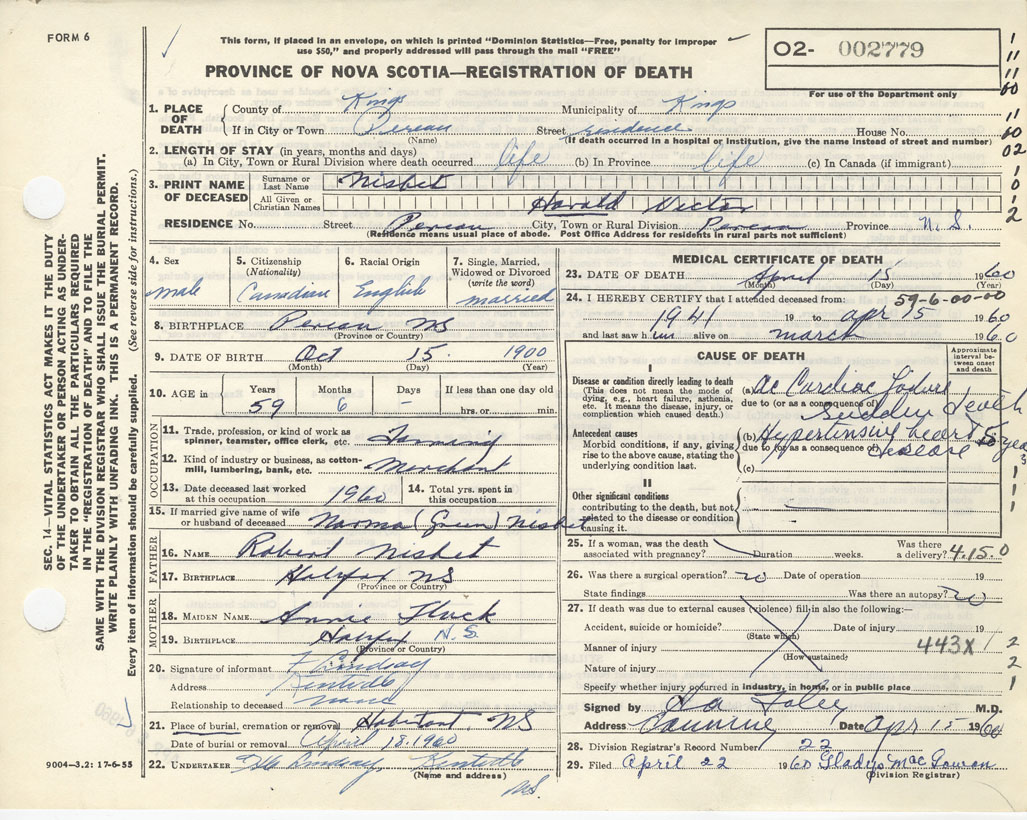 FORM 6
This form, if placed in an envelope, on which is printed "Dominion Statistics—Free, penalty for improper
use $50," and properly addressed will pass through the mail "FREE"
PROVINCE OF NOVA SCOTIA—REGISTRATION OF DEATH
O2- 002779
For use of the Department only
1. PLACE OF DEATH County of Kings Municipality of Kings
If in City or Town Pereau Street residence House No.
(Name) (If death occurred in a hospital or institution, give the name instead of street and number)
2. LENGTH OF STAY (in years, months and days)
(a) In City, Town or Rural Division where death occurred life (b) In Province life (c) In Canada (if immigrant)
3. PRINT NAME OF DECEASED Surname or Last Name Nisbet
All Given or Christian Names Harald Victor
RESIDENCE No. Street Pereau City, Town or Rural Division Pereau Province N.S.
(Residence means usual place of abode. Post Office Address for residents in rural parts not sufficient)
4. Sex male
5. Citizenship (Nationality) Canadian
6. Racial Origin English
7. Single, Married, Widowed or Divorced (write the word) married
8. BIRTHPLACE Pereau NS
(Province or Country)
9. DATE OF BIRTH Oct 15. 1900
(Month) (Day) (Year)
10. AGE in Years 59 Months 6 Days – If less than one day old hrs. or min.
OCCUPATION
11. Trade, profession or kind of work as spinner, teamster, office clerk, etc. Farming
12. Kind of industry or business, as cotton-mill, lumbering, bank, etc. Merchant
13. Date deceased last worked at this occupation 1960
14. Total yrs. spent in this occupation
15. If married give name of wife or husband of deceased Norma (Green) Nisbet
FATHER
16. NAME Robert Nisbet
17. BIRTHPLACE Halifax NS
(Province or Country)
MOTHER
18. MAIDEN NAME Annie
19. BIRTHPLACE Halifax N.S.
(Province or Country)
20. Signature of informant F Lindsay
Address Kentville
Relationship to deceased none
21. Place of burial, cremation or removal Habitant. NS
Date of burial or removal April 18.1960
22. UNDERTAKER Lindsay Kentville
(Name and address) NS.
9004—3.2: 17-6-55
SEC. 14—VITAL STATISTICS ACT MAKES IT THE DUTY
OF THE UNDERTAKER OR PERSON ACTING AS UNDER-
TAKER TO OBTAIN ALL THE PARTICULARS REQUIRED
IN THE "REGISTRATION OF DEATH" AND TO FILE THE
SAME WITH THE DIVISION REGISTRAR WHO SHALL ISSUE THE BURIAL PERMIT.
WRITE PLAINLY WITH UNFADING INK. THIS IS A PERMANENT RECORD.
Every item of information should be carefully supplied. (See reverse side for instructions.)
MEDICAL CERTIFICATE OF DEATH
23. DATE OF DEATH April 15 1960
(Month) (Day) (Year)
24. I HEREBY CERTIFY that I attended deceased from: 59-6-00-00
1941 19 to apr 15 1960
and last saw him alive on march 1960
CAUSE OF DEATH
Approximate interval between onset and death
I
Disease or condition directly leading to death
(This does not mean the mode of dying, e.g., heart failure, asthenia, etc. It means the disease, injury, or complication which caused death.)
(a) Ac Cardiac Failure
due to (or as a consequence of) Sudden death
Antecedent causes
Morbid conditions, if any, giving rise to the above cause, stating the underlying condition last.
(b) Hypertensive heart 5 years
due to (or as a consequence of) disease
(c)
II
Other significant conditions
contributing to the death, but not related to the disease or condition causing it.
25. If a woman, was the death associated with pregnancy? Duration weeks. Was there a delivery? 4.15.0
26. Was there a surgical operation? no Date of operation 19
State findings Was there an autopsy? no
27. If death was due to external causes (violence) fill in also the following:—
Accident, suicide or homicide? Date of injury 19
(State which)
Manner of injury 443X
(How sustained)
Nature of injury
Specify whether injury occurred in industry, in home, or in public place
Signed by Foley M.D.
Address Canning Date Apr 15 1960
28. Division Registrar's Record Number 22
29. Filed April 22 1960 Gladys MacGowan
(Division Registrar)